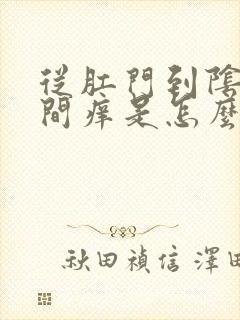 從肛門到陰
間痒是怎麼
秋田禎信 澤田